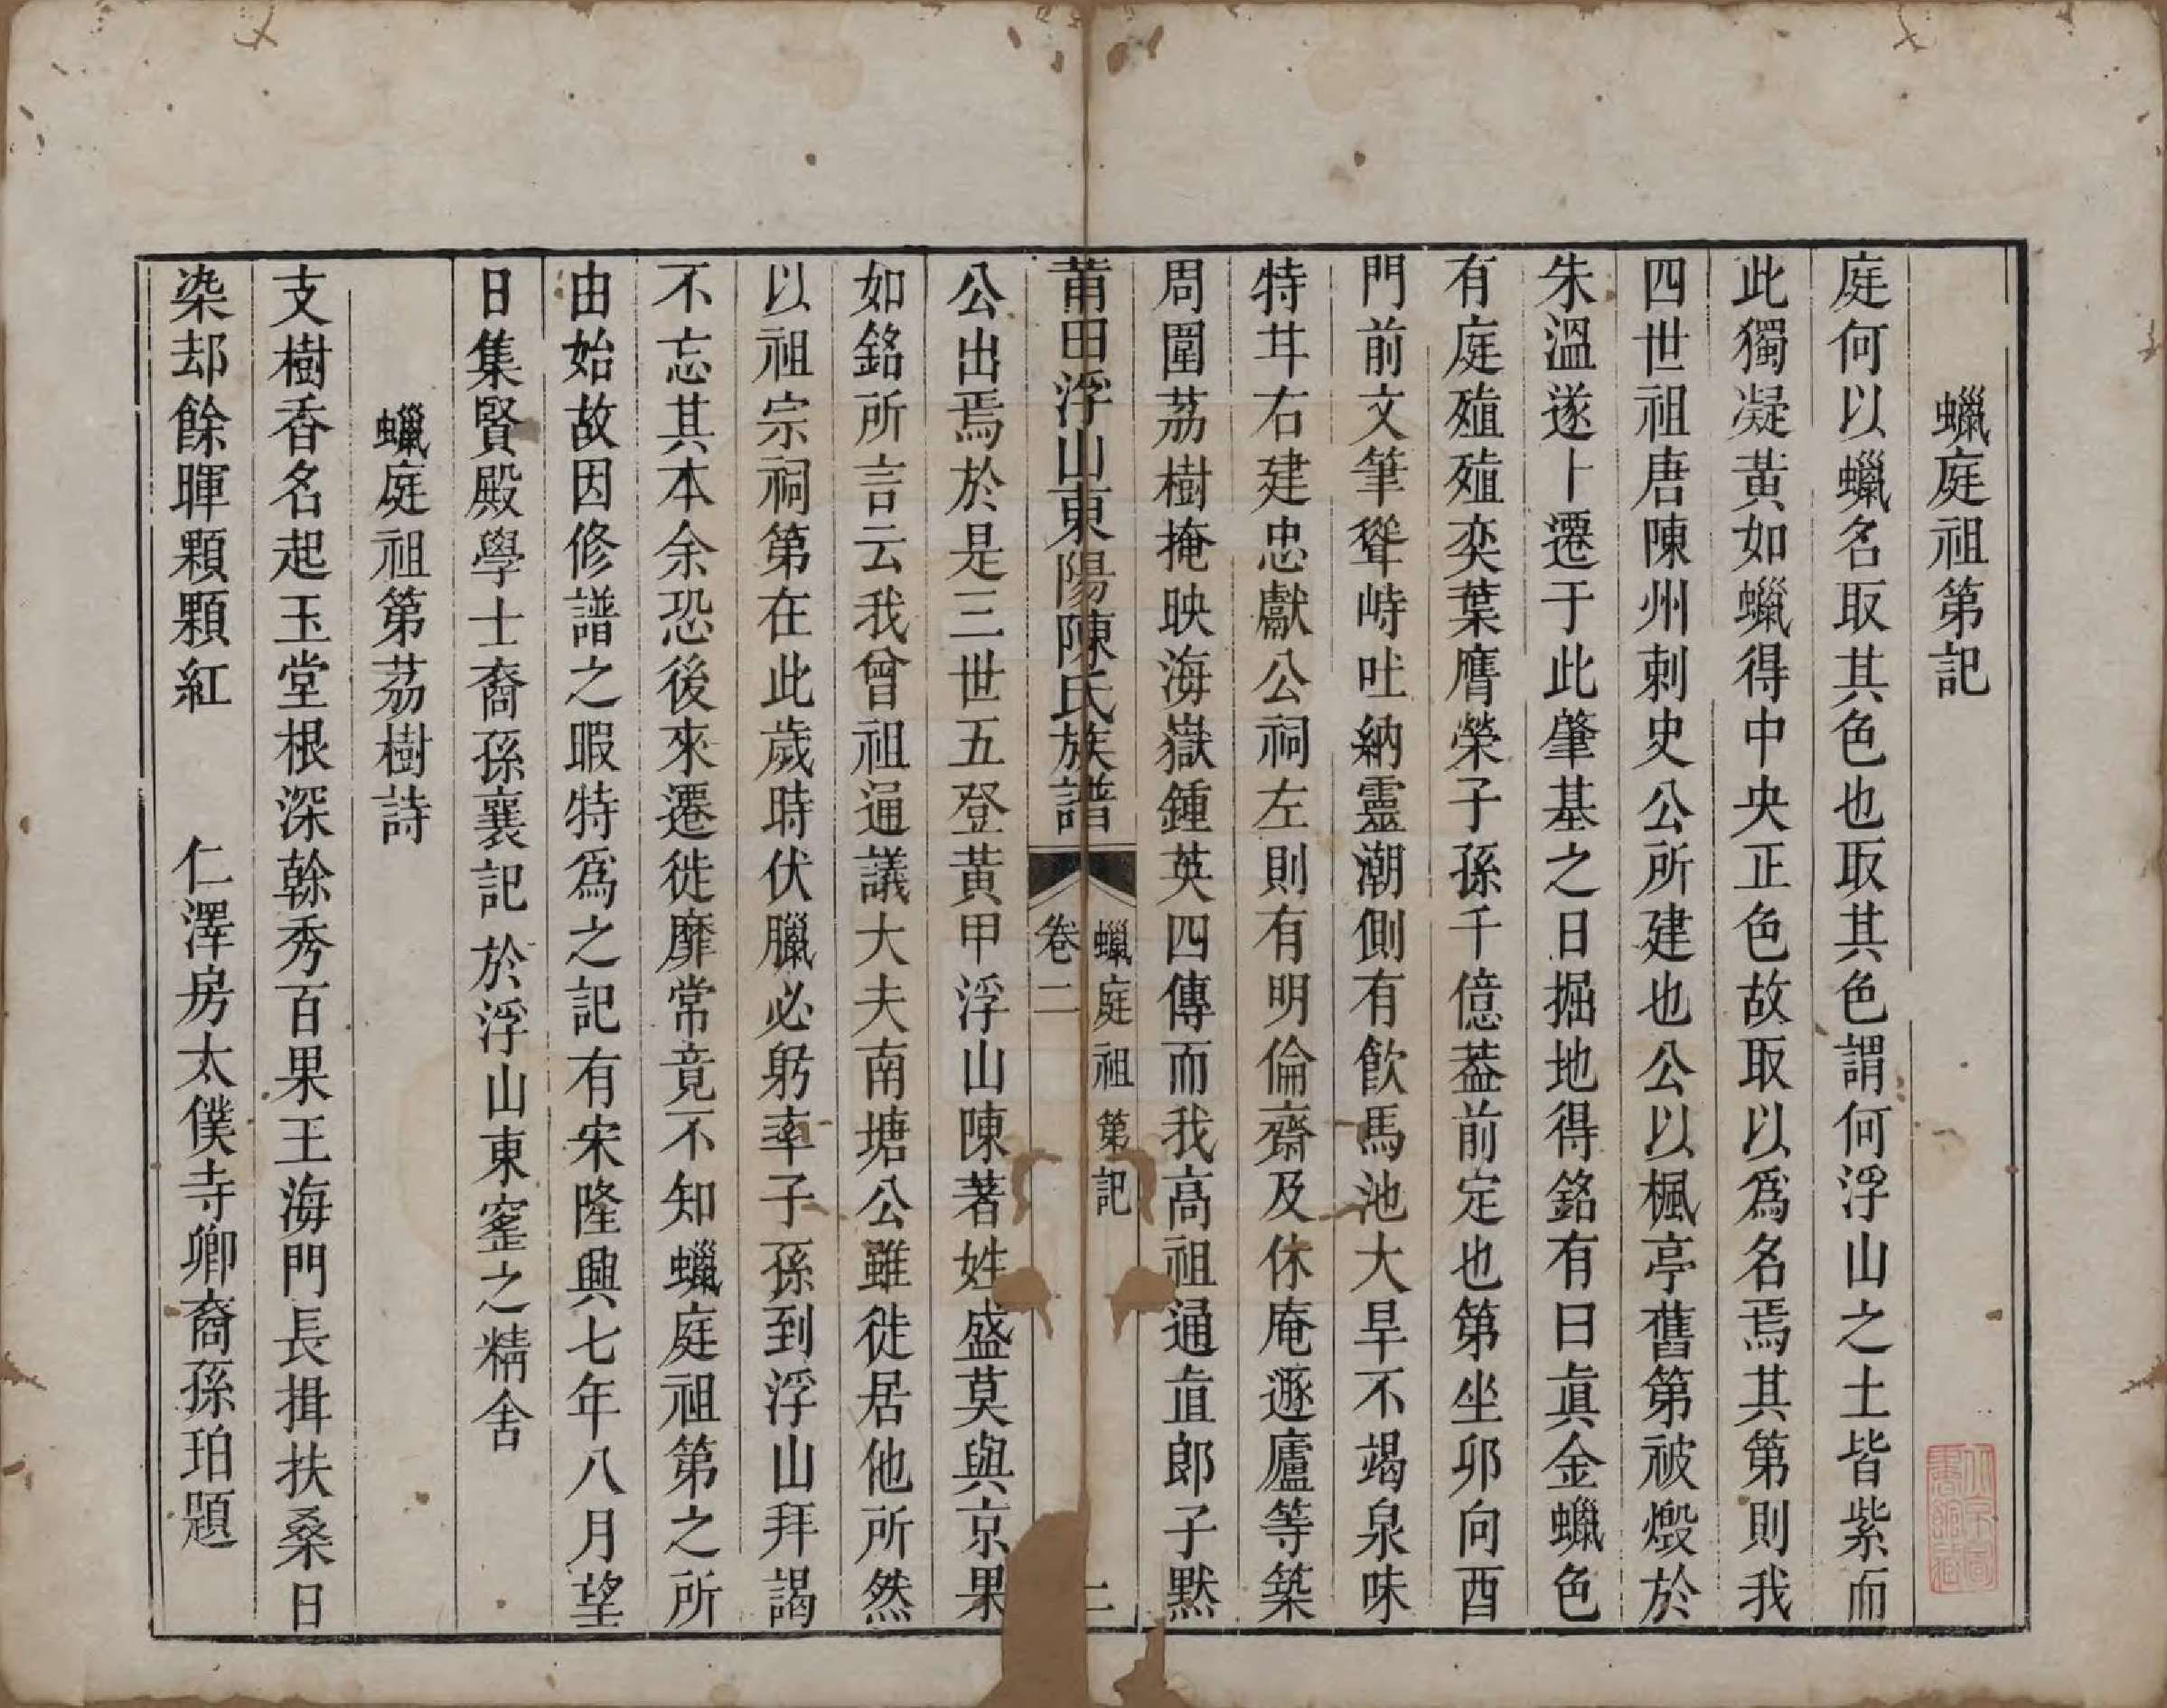 蠟庭祖第記
庭何以蠟名取其色也取其色謂何浮山之土皆紫而
此獨凝黃如蠟得中央正色故取以爲名焉其第則我
四世祖唐陳州刺史公所建也公以楓亭舊第被燬於
朱溫遂卜遷于此肇基之日掘地得銘有曰眞金蠟色
有庭殖殖奕葉膺榮子孫千億葢前定也第坐卯向酉
門前文筆聳峙吐納靈潮側有飲馬池大旱不竭泉味
特甘右建忠獻公祠左則有明倫齋及休庵遯廬等築
周圍荔樹掩映海嶽鍾英四傳而我高祖通直郎子黙
莆田浮山東陽陳氏族譜
蠟庭祖第記
卷二
二
公出焉於是三世五登黃甲浮山陳著姓盛莫與京果
如銘所言云我曾祖通議大夫南塘公雖徙居他所然
以祖宗祠第在此歲時伏臘必躬率子孫到浮山拜謁
不忘其本余恐後來遷徙靡常竟不知蠟庭祖第之所
由始故因修譜之暇特爲之記有宋隆興七年八月望
日集賢殿學士裔孫襄記於浮山東窰之精舍
蠟庭祖第荔樹詩
支樹香名起玉堂根深榦秀百果王海門長揖扶桑日
染却餘暉顆顆紅
仁澤房太僕寺卿裔孫珀題